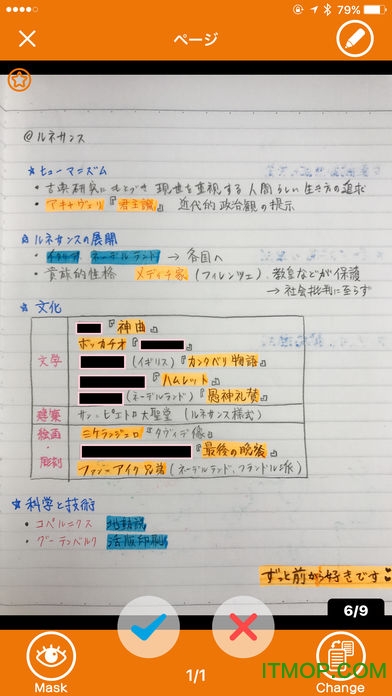 79%
ページ
@ルネサンス
☆ヒューマニズム
・古典研究にもとづき 現世を重視する 人間らしい生き方の追求
・マキャヴェリ『君主論』 近代的政治観の提示
☆ルネサンスの展開
・イタリア ネーデルラント → 各国へ
・貴族的性格 メディチ家(フィレンツェ)、教皇などが保護
→ 社会批判に至らず
☆文化
『神曲』
ボッカチオ『 』
文学 (イギリス)『カンタベリ物語』
『ハムレット』
(ネーデルラント)『愚神礼賛』
建築 サン=ピエトロ大聖堂 (ルネサンス様式)
絵画 ミケランジェロ『ダヴィデ像』
・ 『最後の晩餐』
彫刻 ファン=アイク兄弟 (ネーデルラント、フランドル派)
☆科学と技術
・コペルニクス 地動説
・グーテンベルク 活版印刷
ずっと前から好きです
6/9
Mask
1/1
Change
ITMOP.com